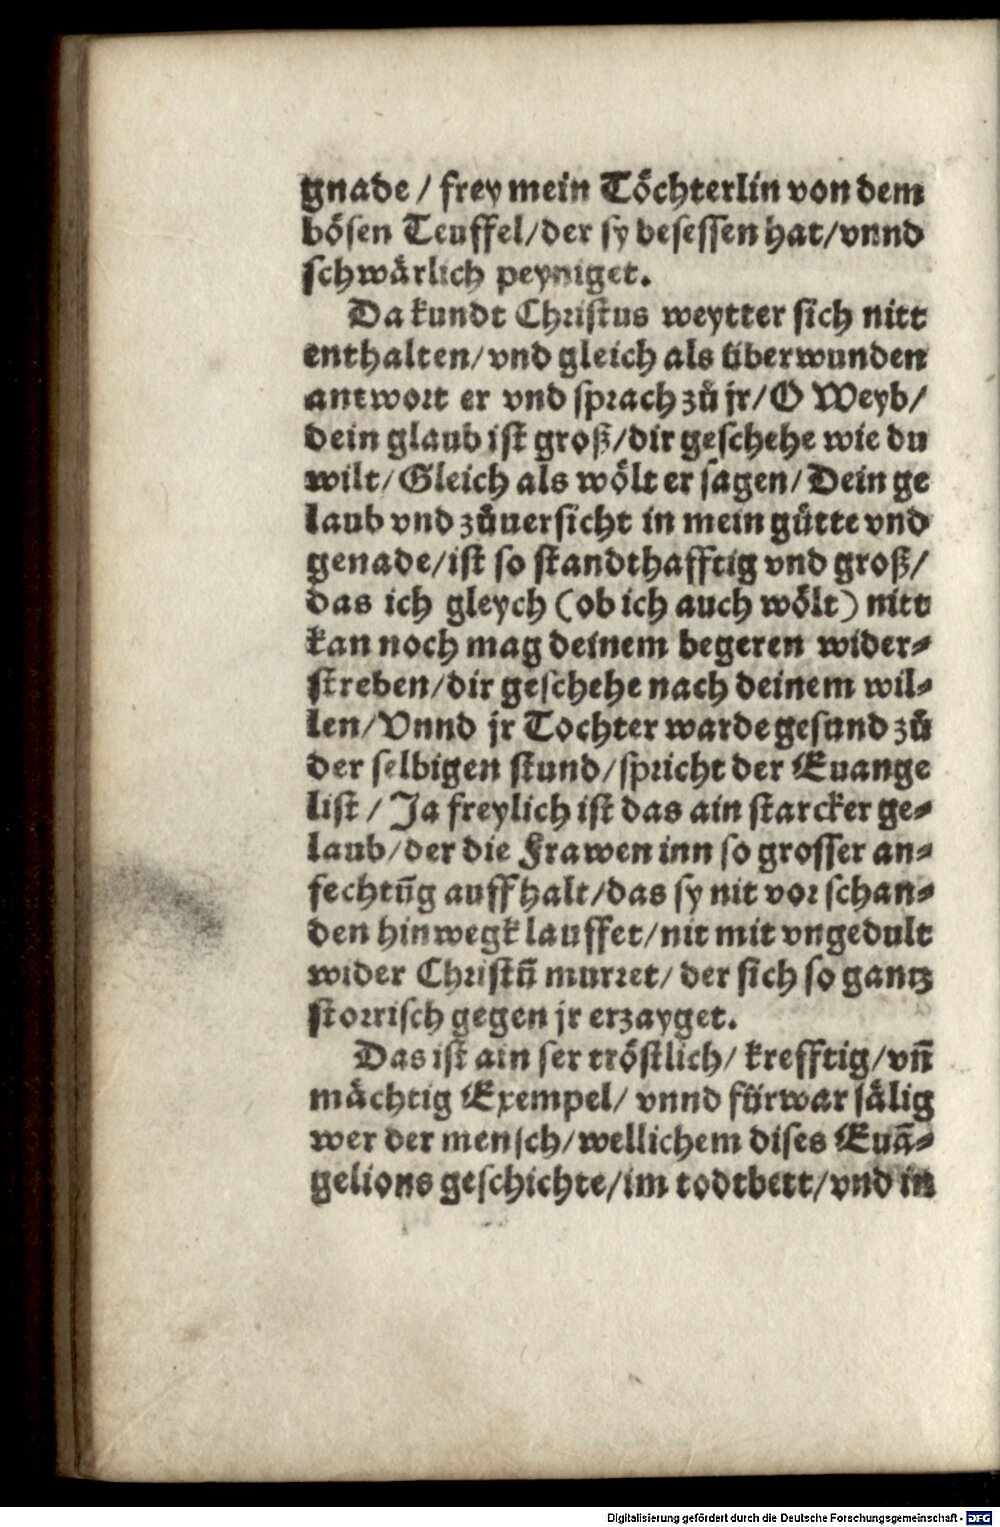 gnade / frey mein Töchterlin von dem
bösen Teuffel/der sy besessen hat/vnnd
schwärlich peyniget.
Da kundt Christus weytter sich nitt
enthalten/vnd gleich als überwunden
antwort er vnd sprach zů jr/O Weyb/
dein glaub ist groß/dir geschehe wie du
wilt/Gleich als wölt er sagen/Dein ge
laub vnd zůuersicht in mein gütte vnd
genade/ist so standthafftig vnd groß/
das ich gleych (ob ich auch wölt) nitt
kan noch mag deinem begeren wider⸗
streben/dir geschehe nach deinem wil⸗
len/Vnnd jr Tochter warde gesund zů
der selbigen stund/spricht der Euange
list / Ja freylich ist das ain starcker ge⸗
laub/der die Frawen inn so grosser an⸗
fechtūg auffhalt/das sy nit vor schan⸗
den hinwegk lauffet/nit mit vngedult
wider Christū murret/der sich so gantz
storrisch gegen jr erzayget.
Das ist ain ser tröstlich/ krefftig/vn̄
mächtig Exempel/ vnnd fürwar sälig
wer der mensch/wellichem dises Euā⸗
gelions geschichte/im todtbett/vnd in
Digitalisierung gefördert durch die Deutsche Forschungsgemeinschaft - DFG